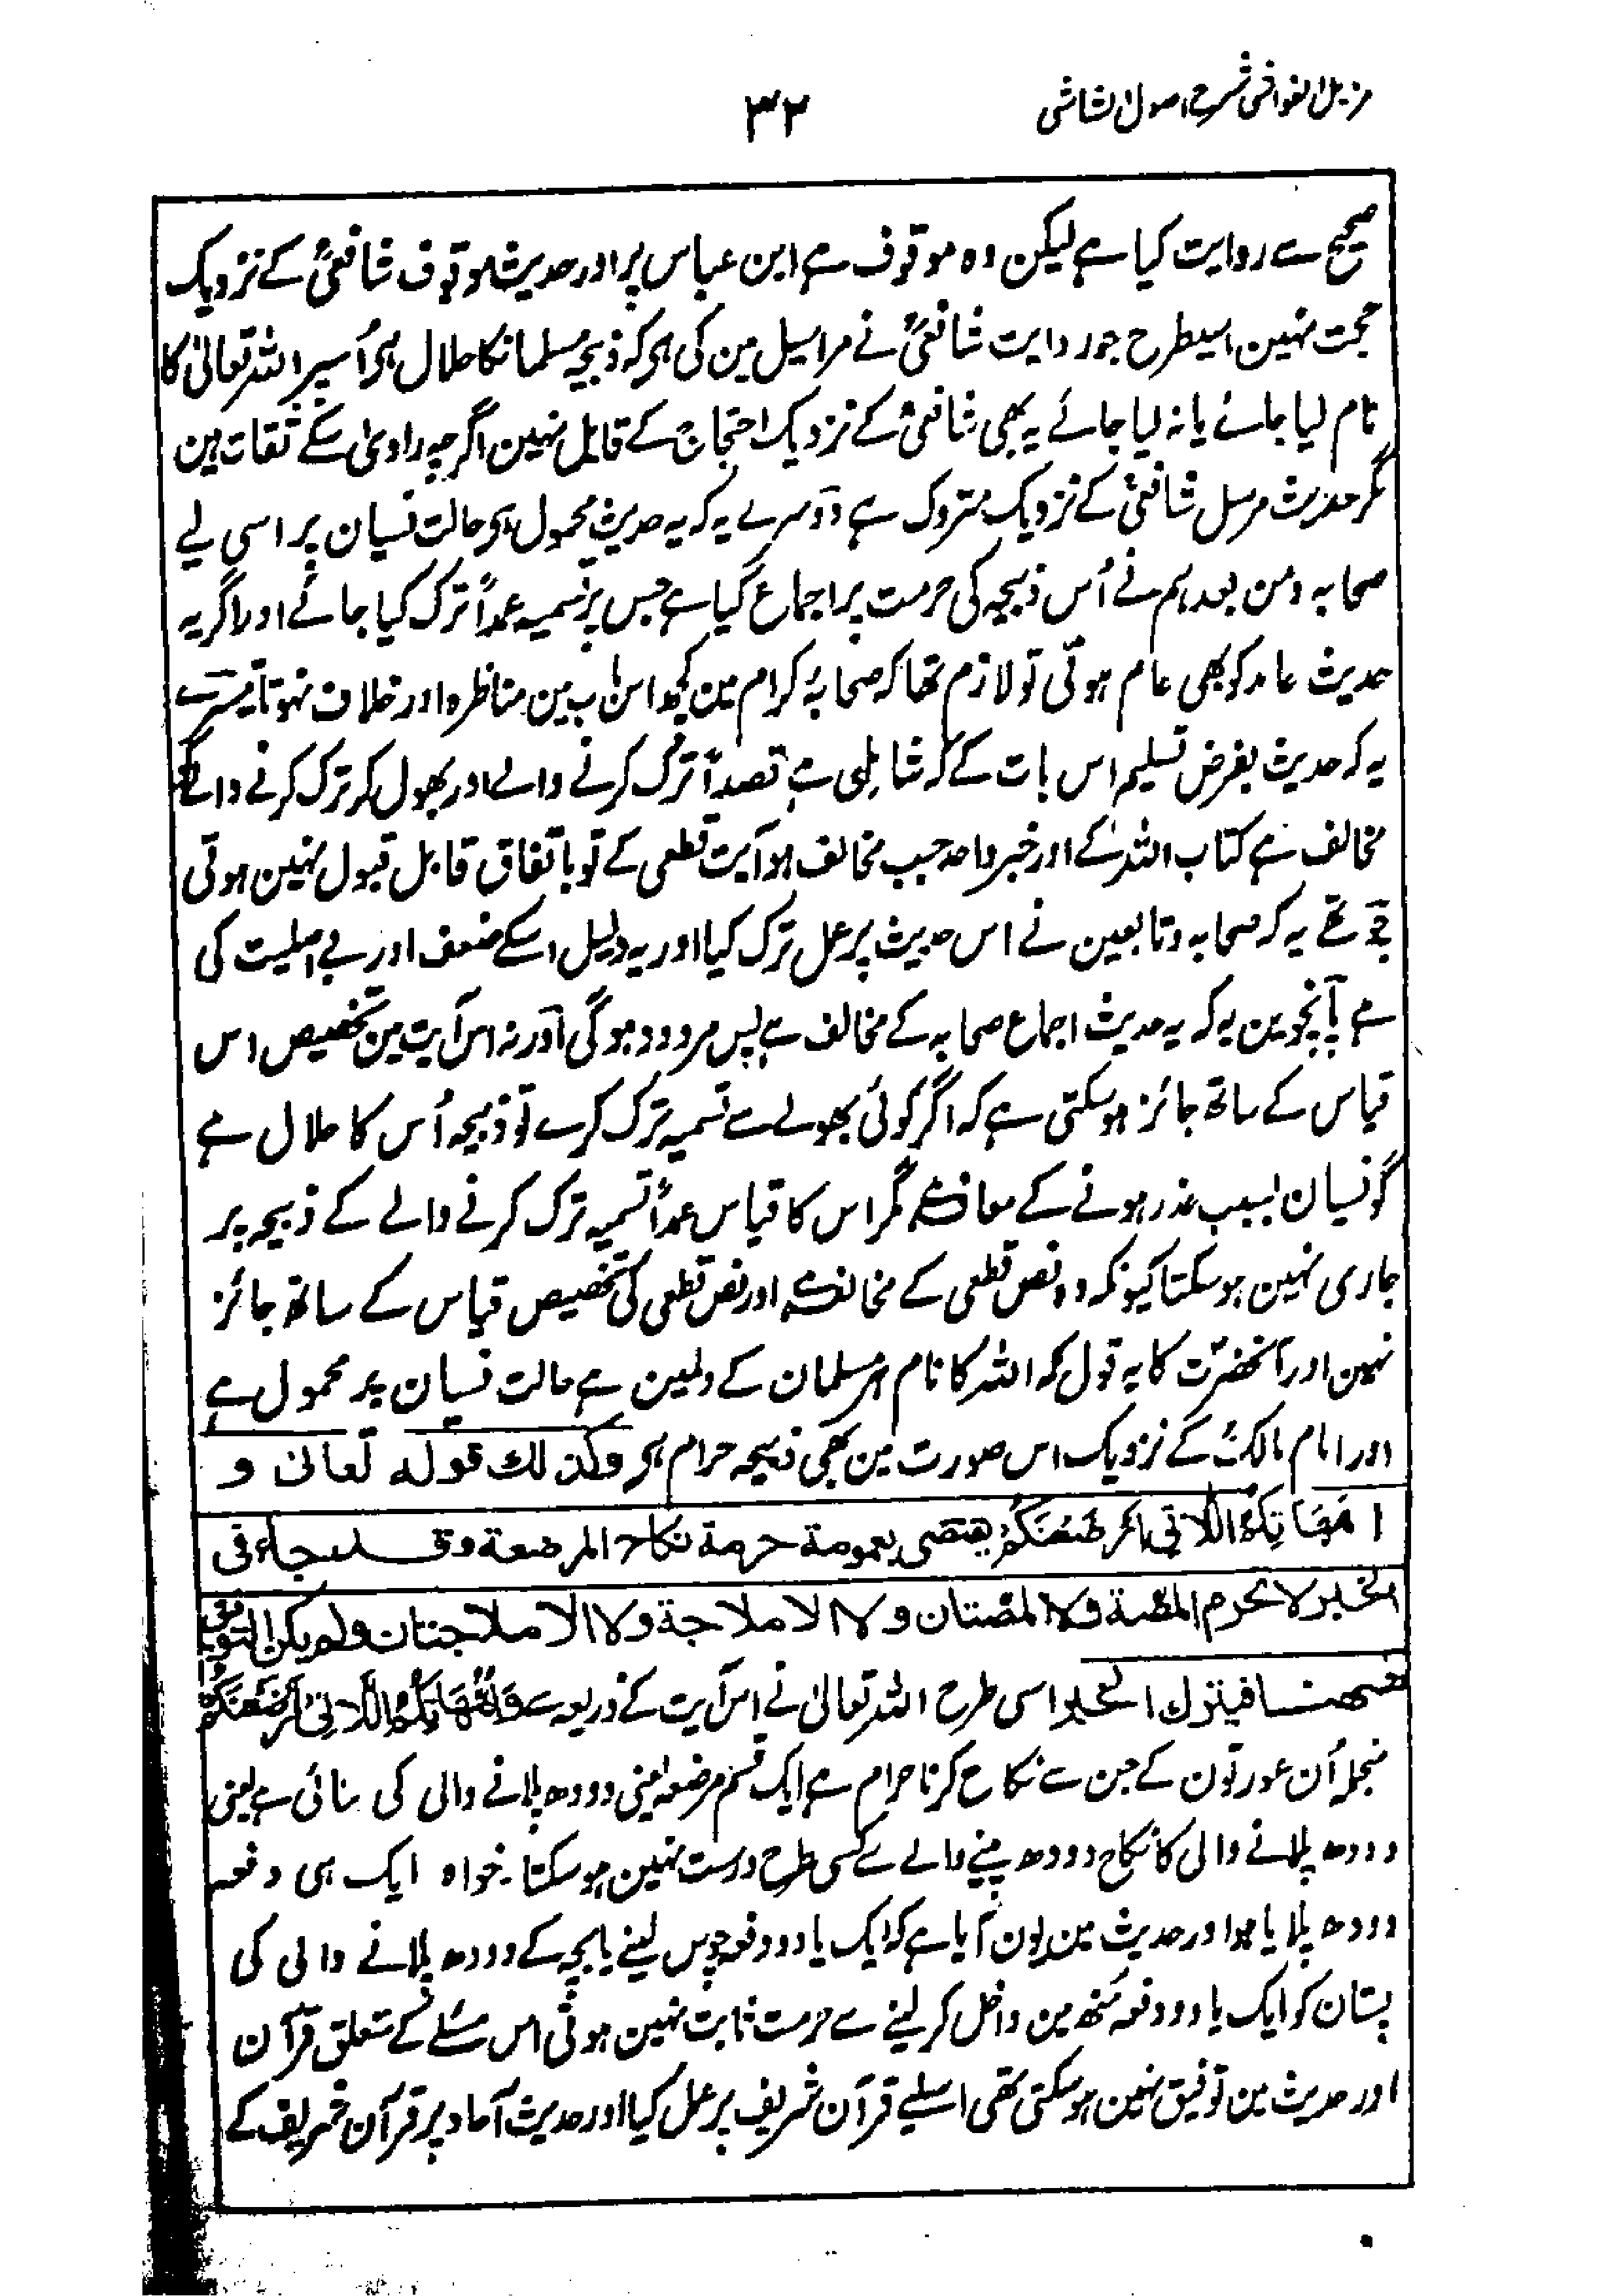 مزیل الغواشی شرح اصول الشاشی
۳۲
صحیح سے روایت کیا ہے لیکن وہ موقوف ہے ابن عباس پر اور حدیث موقوف شافعیؒ کے نزدیک
حجت نہین اسیطرح جو روایت شافعیؒ نے مراسیل مین کی ہی کہ ذبیحہ مسلمانکا حلال ہی اُسپر اللہ تعالیٰ کا
نام لیا جائے یا نہ لیا جائے یہ بھی شافعیؒ کے نزدیک احتجاج کے قابل نہین اگرچہ راوی اسکے ثقات ہین
مگر حدیث مرسل شافعیؒ کے نزدیک متروک ہے دوسرے یہ کہ یہ حدیث محمول ہی حالت نسیان پر اسی لیے
صحابہ و من بعدہم نے اُس ذبیحہ کی حرمت پر اجماع کیا ہے جس پر تسمیہ عمداً ترک کیا جائے اور اگر یہ
حدیث عامد کو بھی عام ہوتی تو لازم تھا کہ صحابۂ کرام مین کچھ اس باب مین مناظرہ اور خلاف نہوتا تیسرے
یہ کہ حدیث بفرض تسلیم اس بات کے کہ شامل ہے قصداً ترک کرنے والے اور بھول کر ترک کرنے والے کو
مخالف ہے کتاب اللہ کے اور خبر واحد جب مخالف ہو آیت قطعی کے تو باتفاق قابل قبول نہین ہوتی
چوتھے یہ کہ صحابہ و تابعین نے اس حدیث پر عمل ترک کیا اور یہ دلیل اسکے ضعف اور بے اصلیت کی
ہے پانچوین یہ کہ یہ حدیث اجماع صحابہ کے مخالف ہے پس مردود ہوگی اور نہ اس آیت مین تخصیص اس
قیاس کے ساتھ جائز ہوسکتی ہے کہ اگر کوئی بھولے سے تسمیہ ترک کرے تو ذبیحہ اُس کا حلال ہے
گو نسیان بسبب عذر ہونے کے معاف ہے مگر اس کا قیاس عمداً تسمیہ ترک کرنے والے کے ذبیحہ پر
جاری نہین ہوسکتا کیونکہ وہ نص قطعی کے مخالف ہے اور نص قطعی کی تخصیص قیاس کے ساتھ جائز
نہین اور آنحضرت کا یہ قول کہ اللہ کا نام ہر مسلمان کے دلمین ہے حالت نسیان پر محمول ہے
اور امام مالکؒ کے نزدیک اس صورت مین بھی ذبیحہ حرام ہی وکذلك قوله تعالی و
امهاتکم اللاتی ارضعنکم یقتضی بعمومه حرمة نکاح المرضعة وقد جاء فی
الخبر لا تحرم المصة ولا المصتان ولا الاملاجة ولا الاملاجتان ولم یکن التوفیق
بینهما فیترك الخبر اسی طرح اللہ تعالیٰ نے اس آیت کے ذریعہ سے وَاُمَّهَاتُكُمُ اللَّاتِیْ اَرْضَعْنَكُمْ
منجملہ اُن عورتون کے جن سے نکاح کرنا حرام ہے ایک قسم مرضعہ یعنی دودھ پلانے والی کی بتائی ہے یعنی
دودھ پلانے والی کا نکاح دودھ پینے والے سے کسی طرح درست نہین ہوسکتا۔ خواہ ایک ہی دفعہ
دودھ پلایا ہو اور حدیث مین یون آیا ہے کہ ایک یا دو دفعہ چوس لینے یا بچہ کے دودھ پلانے والی کی
پستان کو ایک یا دو دفعہ مُنھ مین داخل کر لینے سے حرمت ثابت نہین ہوتی اس مسئلے کے متعلق قرآن
اور حدیث مین توفیق نہین ہوسکتی تھی اسلیے قرآن شریف پر عمل کیا اور حدیث آحاد پر قرآن شریف کے